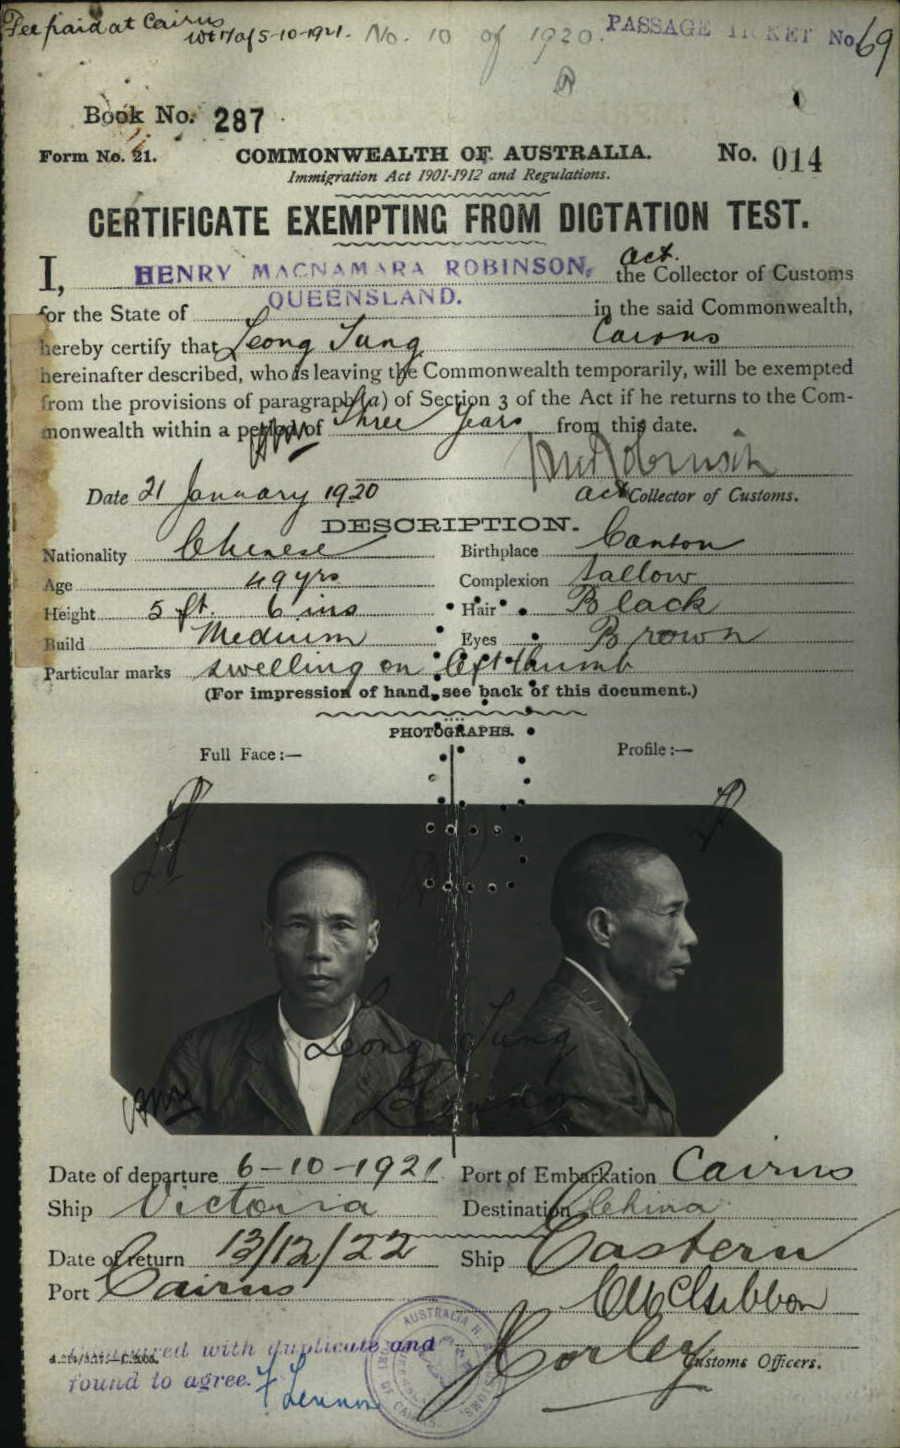 Fee paid at Cairns
5-10-1921. No. 10 of 1920. PASSAGE TICKET No. 69
Book No. 287
Form No. 21. COMMONWEALTH OF AUSTRALIA. No. 014
Immigration Act 1901-1912 and Regulations.
CERTIFICATE EXEMPTING FROM DICTATION TEST.
I, HENRY MACNAMARA ROBINSON, act. the Collector of Customs
for the State of QUEENSLAND. in the said Commonwealth,
hereby certify that Leong Tung Cairns
hereinafter described, who is leaving the Commonwealth temporarily, will be exempted
from the provisions of paragraph (a) of Section 3 of the Act if he returns to the Com-
monwealth within a period of three years from this date.
HMRobinson
Date 21 January 1920 act Collector of Customs.
DESCRIPTION.
Nationality Chinese Birthplace Canton
Age 49 yrs Complexion Sallow
Height 5 ft. 6 ins Hair Black
Build Medium Eyes Brown
Particular marks swelling on left thumb
(For impression of hand, see back of this document.)
PHOTOGRAPHS.
Full Face:— Profile:—
Leong Tung
Date of departure 6-10-1921 Port of Embarkation Cairns
Ship Victoria Destination China
Date of return 13/12/22 Ship Eastern
Port Cairns
Customs Officers.
with duplicate and
found to agree. F Lennon